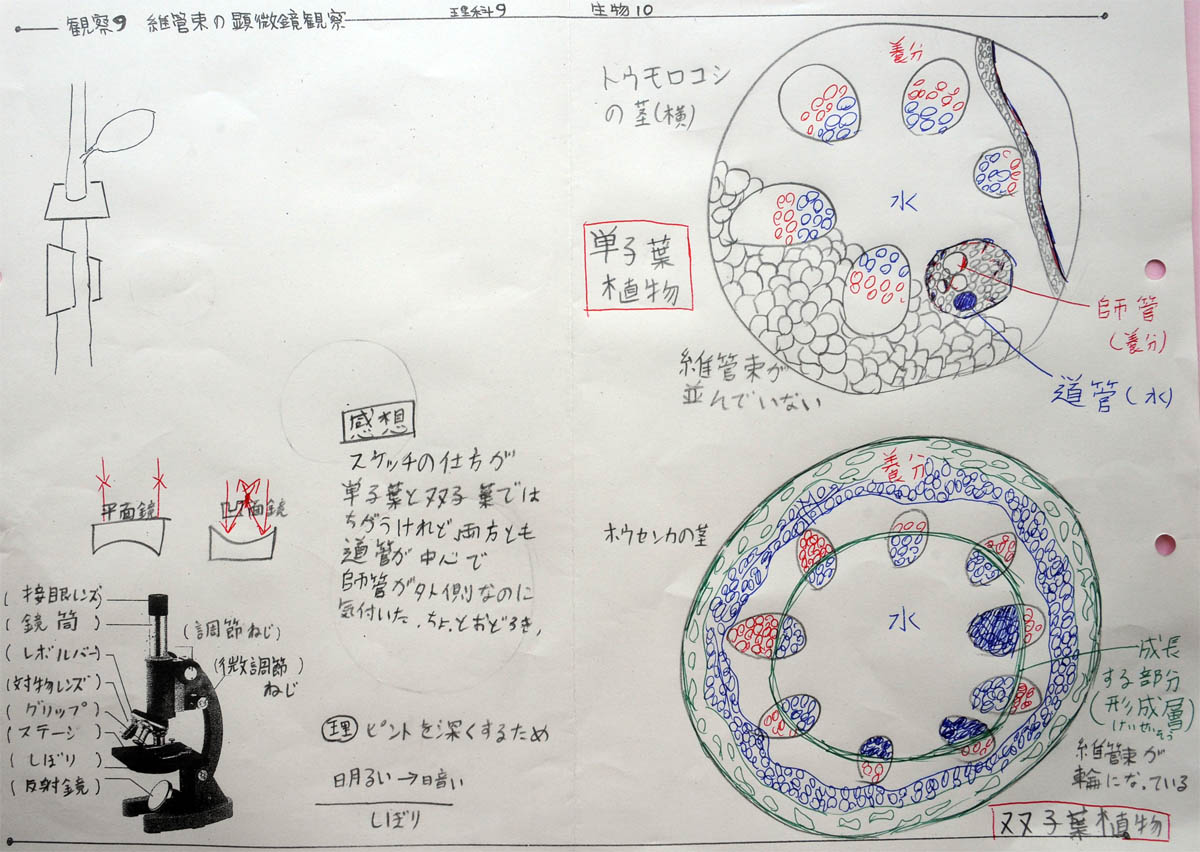 観察9 維管束の顕微鏡観察
理科9
生物10
平面鏡
凹面鏡
(接眼レンズ)
(鏡筒)
(調節ねじ)
(レボルバー)
(微調節
ねじ)
(対物レンズ)
(グリップ)
(ステージ)
(しぼり)
(反射鏡)
感想
スケッチの仕方が
単子葉と双子葉では
ちがうけれど、両方とも
道管が中心で
師管が外側なのに
気付いた。ちょっとおどろき。
理 ピントを深くするため
明るい→暗い
しぼり
トウモロコシ
の茎(横)
養分
水
単子葉
植物
師管
(養分)
道管(水)
維管束が
並んでいない
ホウセンカの茎
養分
水
成長
する部分
(形成層)
けいせいそう
維管束が
輪になっている
双子葉植物